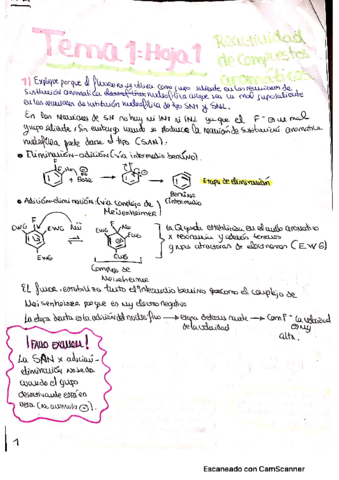 Tema 1: Hoja 1
Reactividad
de compuestos
aromáticos
1) Explique porque el fluoruro se utiliza como grupo saliente en las reacciones de
sustitución aromática nucleofílica aunque sea un mal grupo saliente
en las reacciones de sustitución nucleofílica de tipo SN1 y SN2.
En las reacciones de SN no hay ni SN1 ni SN2 ya que el F⁻ es un mal
grupo saliente, sin embargo cuando se produce la reacción de sustitución aromática
nucleófila, puede darse el tipo (SAN):
• Eliminación-adición (vía intermedio bencino).
F
+ Base
F
Etapa de eliminación
Bencino
(Intermedio
• Adición-eliminación (vía complejo de
Meisenheimer
F
EWG
EWG
Nu
EWG
F
Nu
EWG
EWG
Complejo de
Meisenheimer
la carga estabiliza en el anillo aromático
x resonancia y además tenemos
grupos atractores de electrones (EWG)
El fluor estabiliza tanto el intermedio bencino como el complejo de
Meisenheimer porque es muy electronegativo
La etapa lenta es la adición del nucleófilo → etapa determinante de la velocidad → Con F⁻ la velocidad es muy alta.
¡Para examen!
La SAN x adición-
eliminación no se da
cuando el grupo
desactivante está en
meta (no acumula ⊖).
1
Escaneado con CamScanner